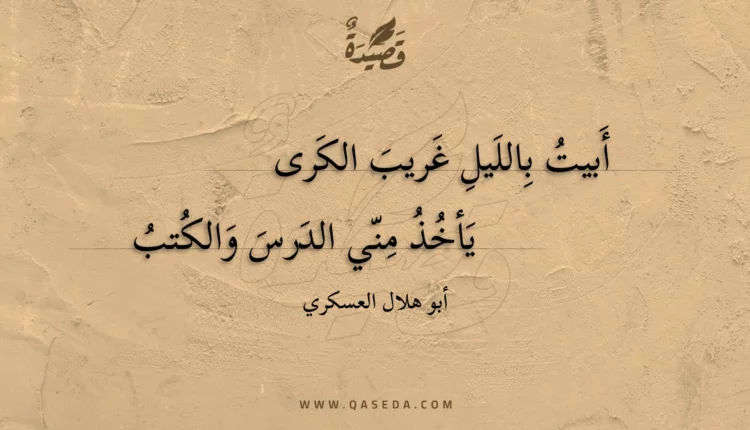 قَصِيدَةٌ
أَبيتُ بِاللَيلِ غَريبَ الكَرى
يَأخُذُ مِنّي الدَرسَ وَالكُتبُ
أبو هلال العسكري
WWW.QASEDA.COM